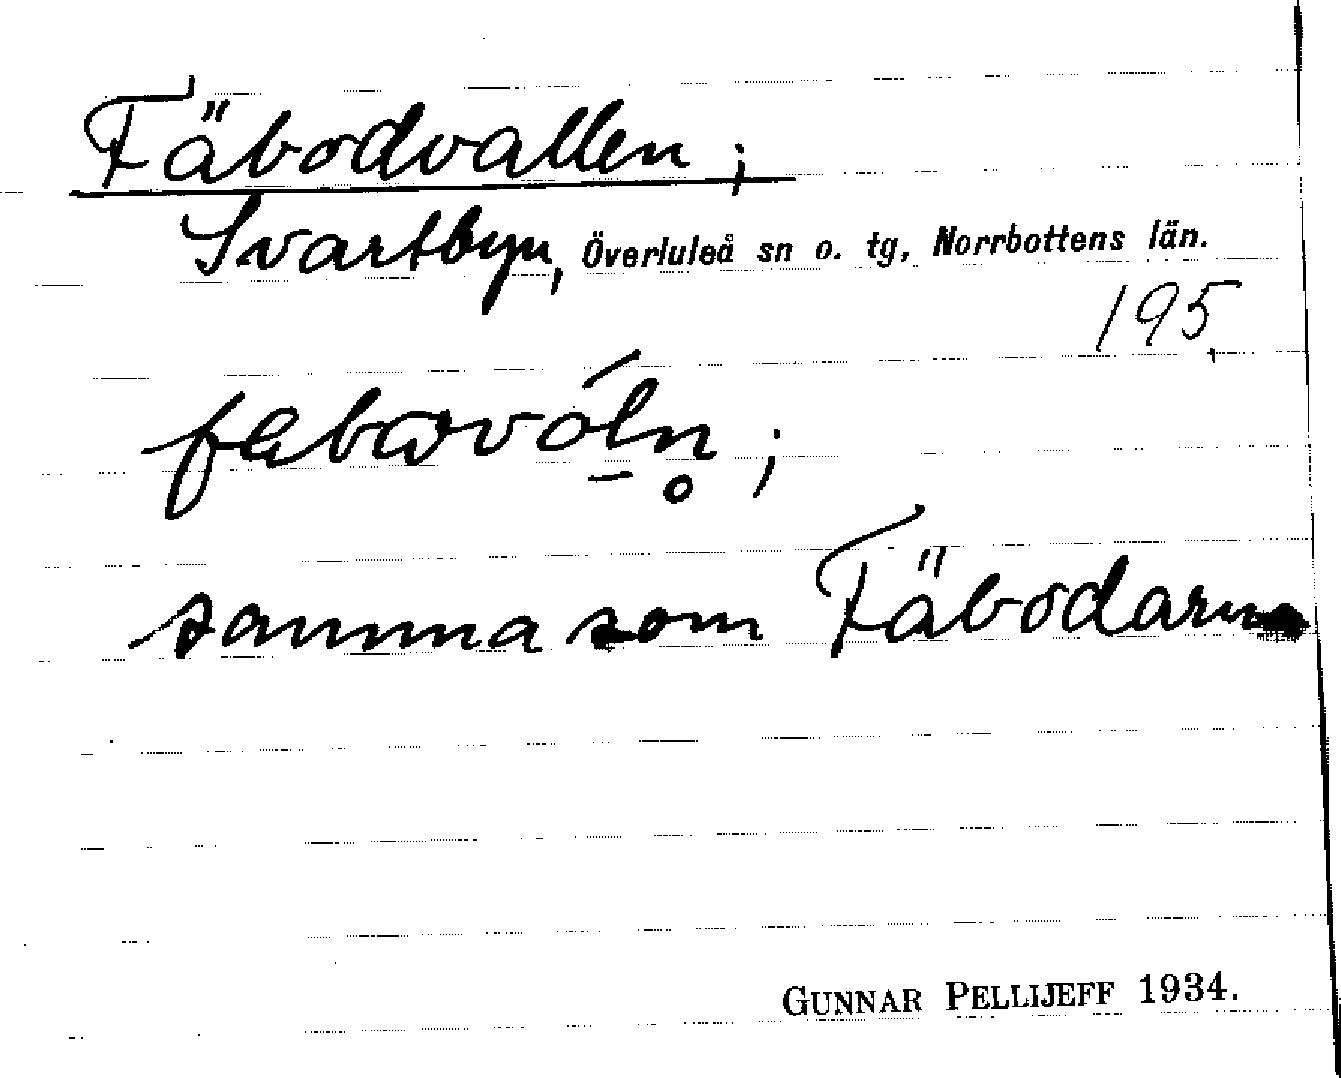 Fäbodvallen;
Svartbyn, Överluleå sn o. tg, Norrbottens län.
195.
samma som Fäbodarna
GUNNAR PELLIJEFF 1934.